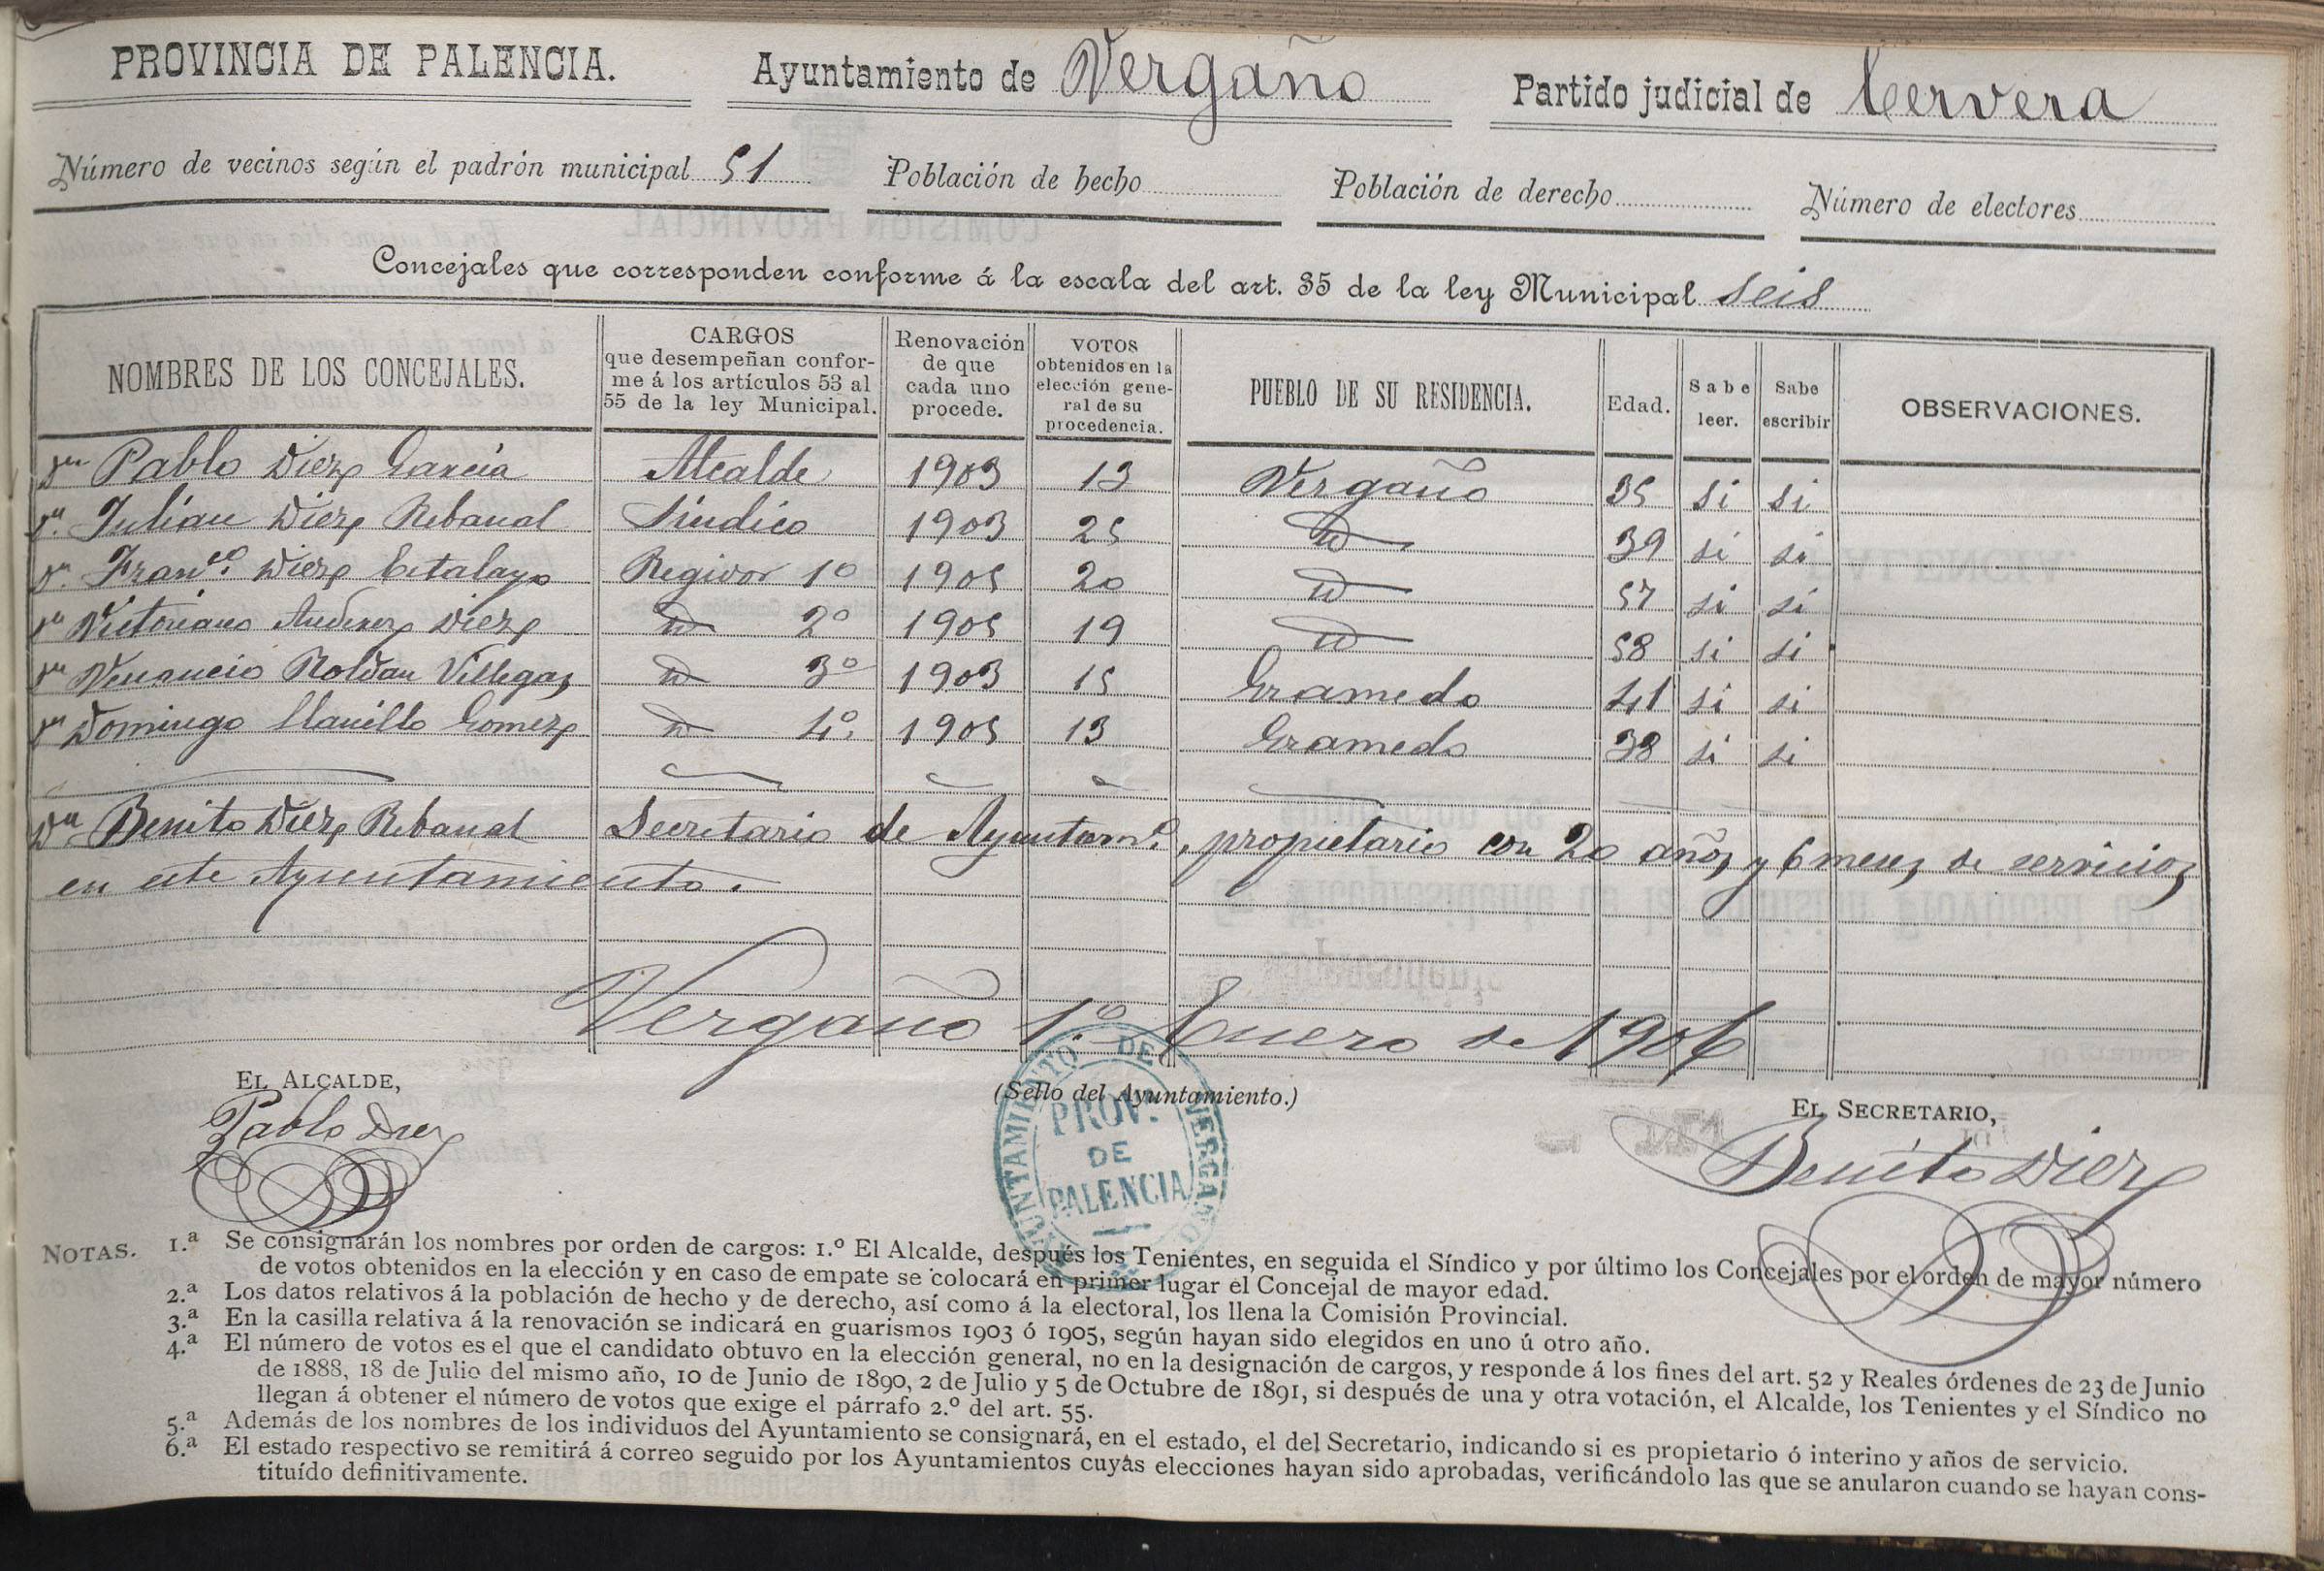 PROVINCIA DE PALENCIA. Ayuntamiento de Vergaño Partido judicial de Cervera
Número de vecinos según el padrón municipal 51 Población de hecho Población de derecho Número de electores
Concejales que corresponden conforme á la escala del art. 35 de la ley Municipal seis
NOMBRES DE LOS CONCEJALES. CARGOS que desempeñan confor-me á los artículos 53 al 55 de la ley Municipal. Renovación de que cada uno procede. VOTOS obtenidos en la elección gene-ral de su procedencia. PUEBLO DE SU RESIDENCIA. Edad. Sabe leer. Sabe escribir OBSERVACIONES.
Dn Pablo Diez Garcia Alcalde 1903 13 Vergaño 35 si si
Dn. Julian Diez Rebanal Sindico 1903 25 id 39 si si
Dn. Franco. Diez Regidor 1º 1905 20 id 57 si si
Dn Victoriano Diez id 2º 1905 19 id 58 si si
Dn Venancio Roldan Villegas id 3º 1903 15 Gramedo 41 si si
Dn Domingo Llanillo Gomez id 4º. 1905 13 Gramedo 38 si si
Dn Benito Diez Rebanal Secretario de Ayuntamto., propietario con 20 años y 6 meses de servicios
en este Ayuntamiento.
Vergaño 1.º Enero de 1906
EL ALCALDE, (Sello del Ayuntamiento.) EL SECRETARIO,
Pablo Diez Benito Diez
AYUNTAMIENTO DE VERGAÑO
PROV.
DE
PALENCIA
NOTAS. 1.ª Se consignarán los nombres por orden de cargos: 1.º El Alcalde, después los Tenientes, en seguida el Síndico y por último los Concejales por el orden de mayor número
de votos obtenidos en la elección y en caso de empate se colocará en primer lugar el Concejal de mayor edad.
2.ª Los datos relativos á la población de hecho y de derecho, así como á la electoral, los llena la Comisión Provincial.
3.ª En la casilla relativa á la renovación se indicará en guarismos 1903 ó 1905, según hayan sido elegidos en uno ú otro año.
4.ª El número de votos es el que el candidato obtuvo en la elección general, no en la designación de cargos, y responde á los fines del art. 52 y Reales órdenes de 23 de Junio
de 1888, 18 de Julio del mismo año, 10 de Junio de 1890, 2 de Julio y 5 de Octubre de 1891, si después de una y otra votación, el Alcalde, los Tenientes y el Síndico no
llegan á obtener el número de votos que exige el párrafo 2.º del art. 55.
5.ª Además de los nombres de los individuos del Ayuntamiento se consignará, en el estado, el del Secretario, indicando si es propietario ó interino y años de servicio.
6.ª El estado respectivo se remitirá á correo seguido por los Ayuntamientos cuyas elecciones hayan sido aprobadas, verificándolo las que se anularon cuando se hayan cons-
tituído definitivamente.